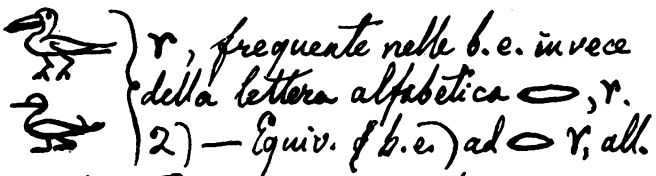 𓅬 } r, frequente nelle b.e. invece
della lettera alfabetica 𓂋, r.
𓅭 } 2) — Equiv. (b.e.) ad 𓂋 r, all.